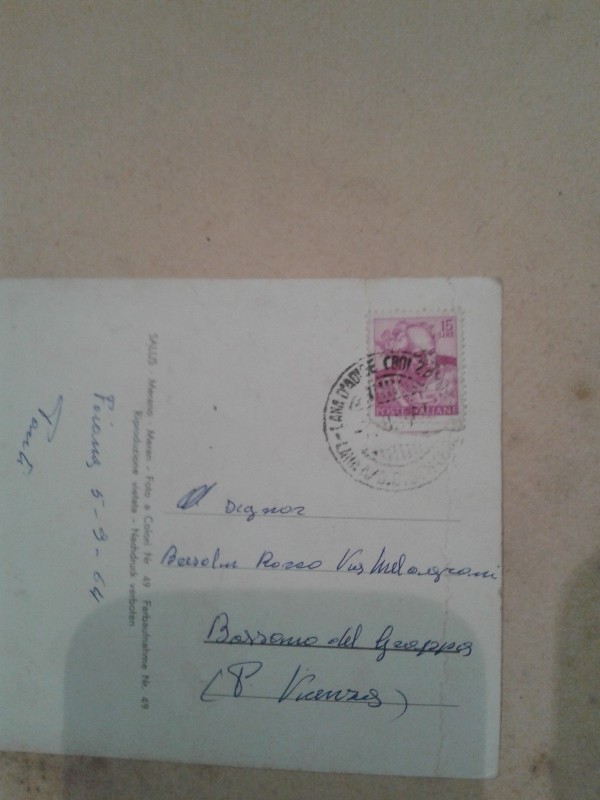 SALUS Merano - Meran - Foto a Colori Nr. 49 Farbaufnahme Nr. 49
Riproduzione vietata - Nachdruck verboten
5-9-64
15
POSTE ITALIANE
LANA D'ADIGE
Signor
Rosso Via Melograni
Bassano del Grappa
(P Vicenza)